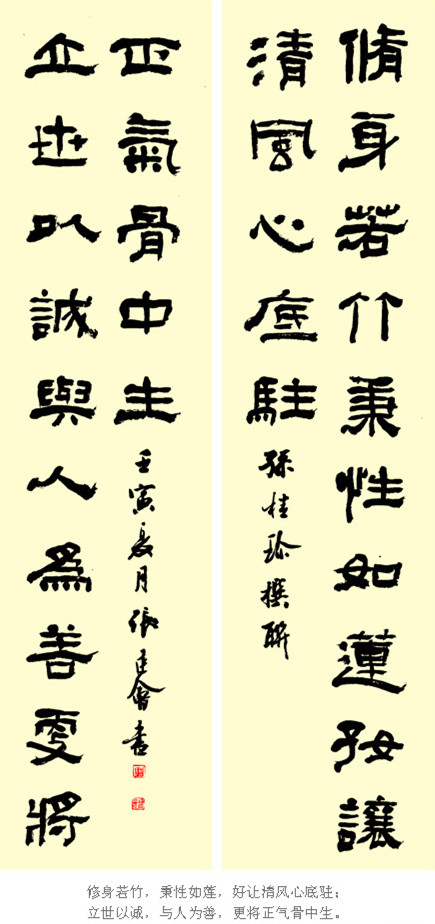 脩身若竹秉性如蓮好讓
清風心底駐
孫桂珍撰聯
立世以誠與人爲善更將
正氣骨中生
壬寅夏月張建會書
修身若竹，秉性如莲，好让清风心底驻；
立世以诚，与人为善，更将正气骨中生。